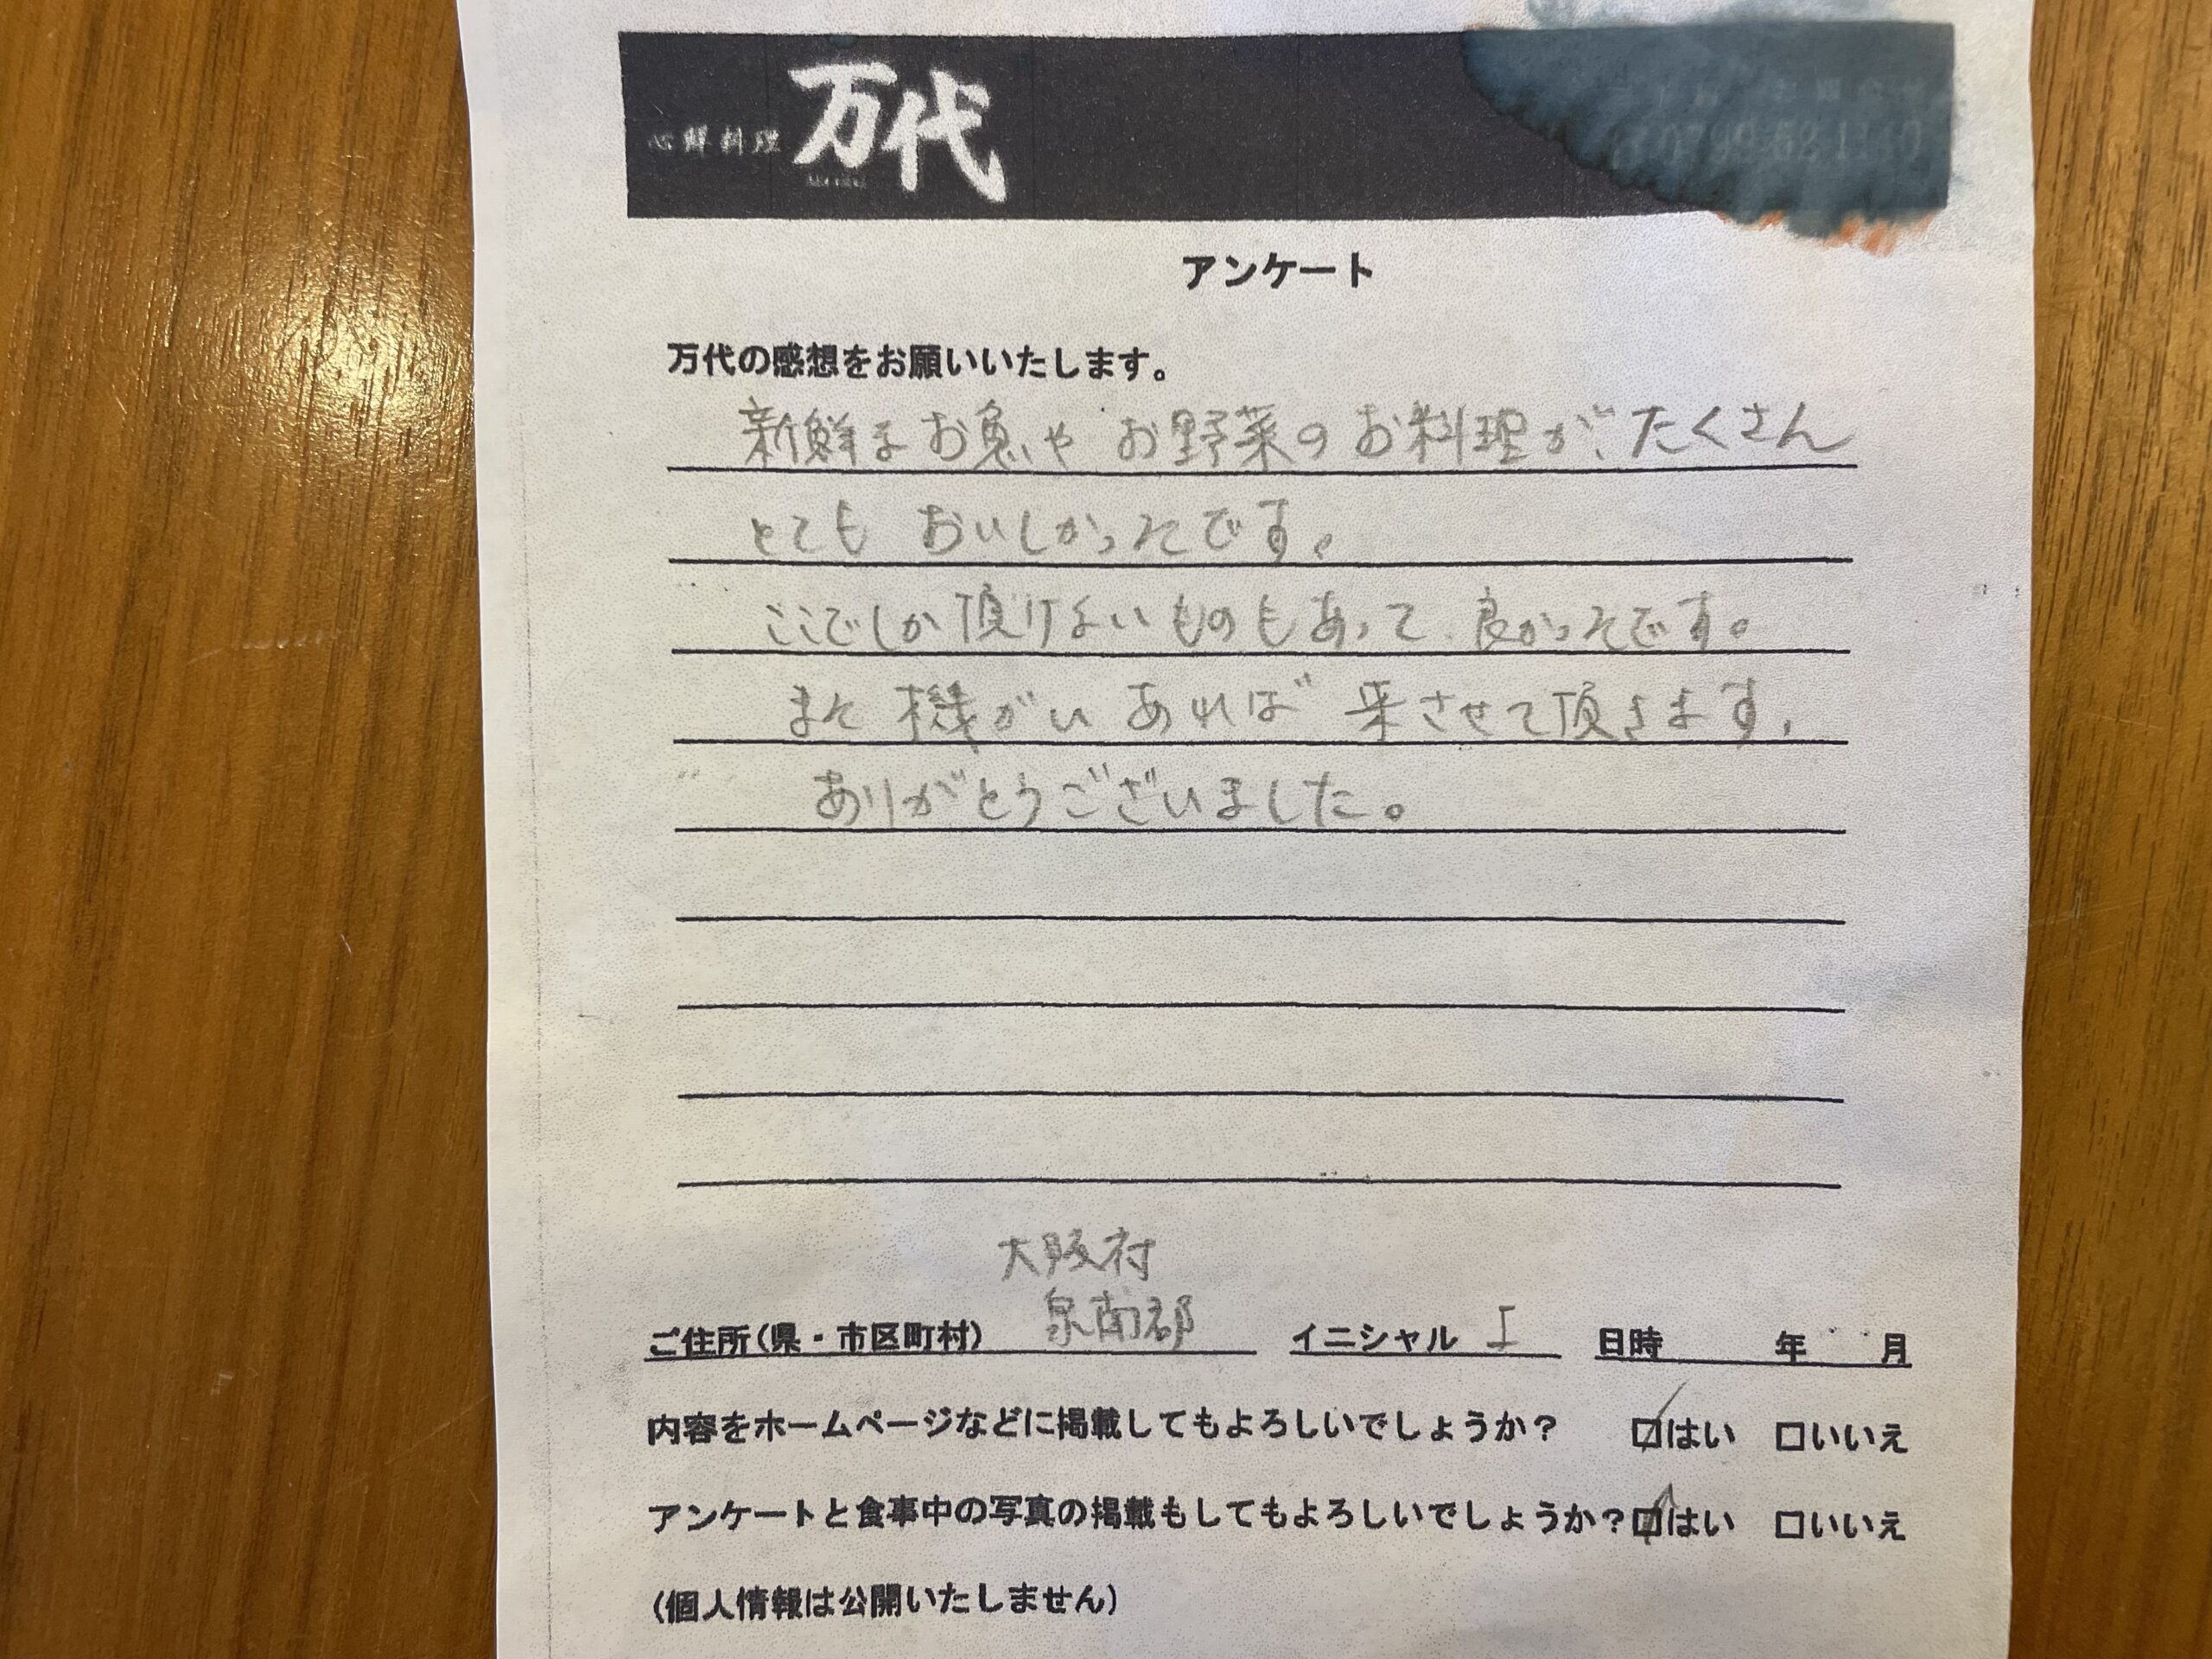 心鮮料理 万代
アンケート
万代の感想をお願いいたします。
新鮮なお魚や お野菜のお料理が、たくさん
とても おいしかったです。
ここでしか頂けないものもあって、良かったです。
また 機がい あれば 来させて頂きます。
ありがとうございました。
大阪府
泉南郡
ご住所(県・市区町村) イニシャル I 日時 年 月
内容をホームページなどに掲載してもよろしいでしょうか? ☑はい □いいえ
アンケートと食事中の写真の掲載もしてもよろしいでしょうか?☑はい □いいえ
(個人情報は公開いたしません)